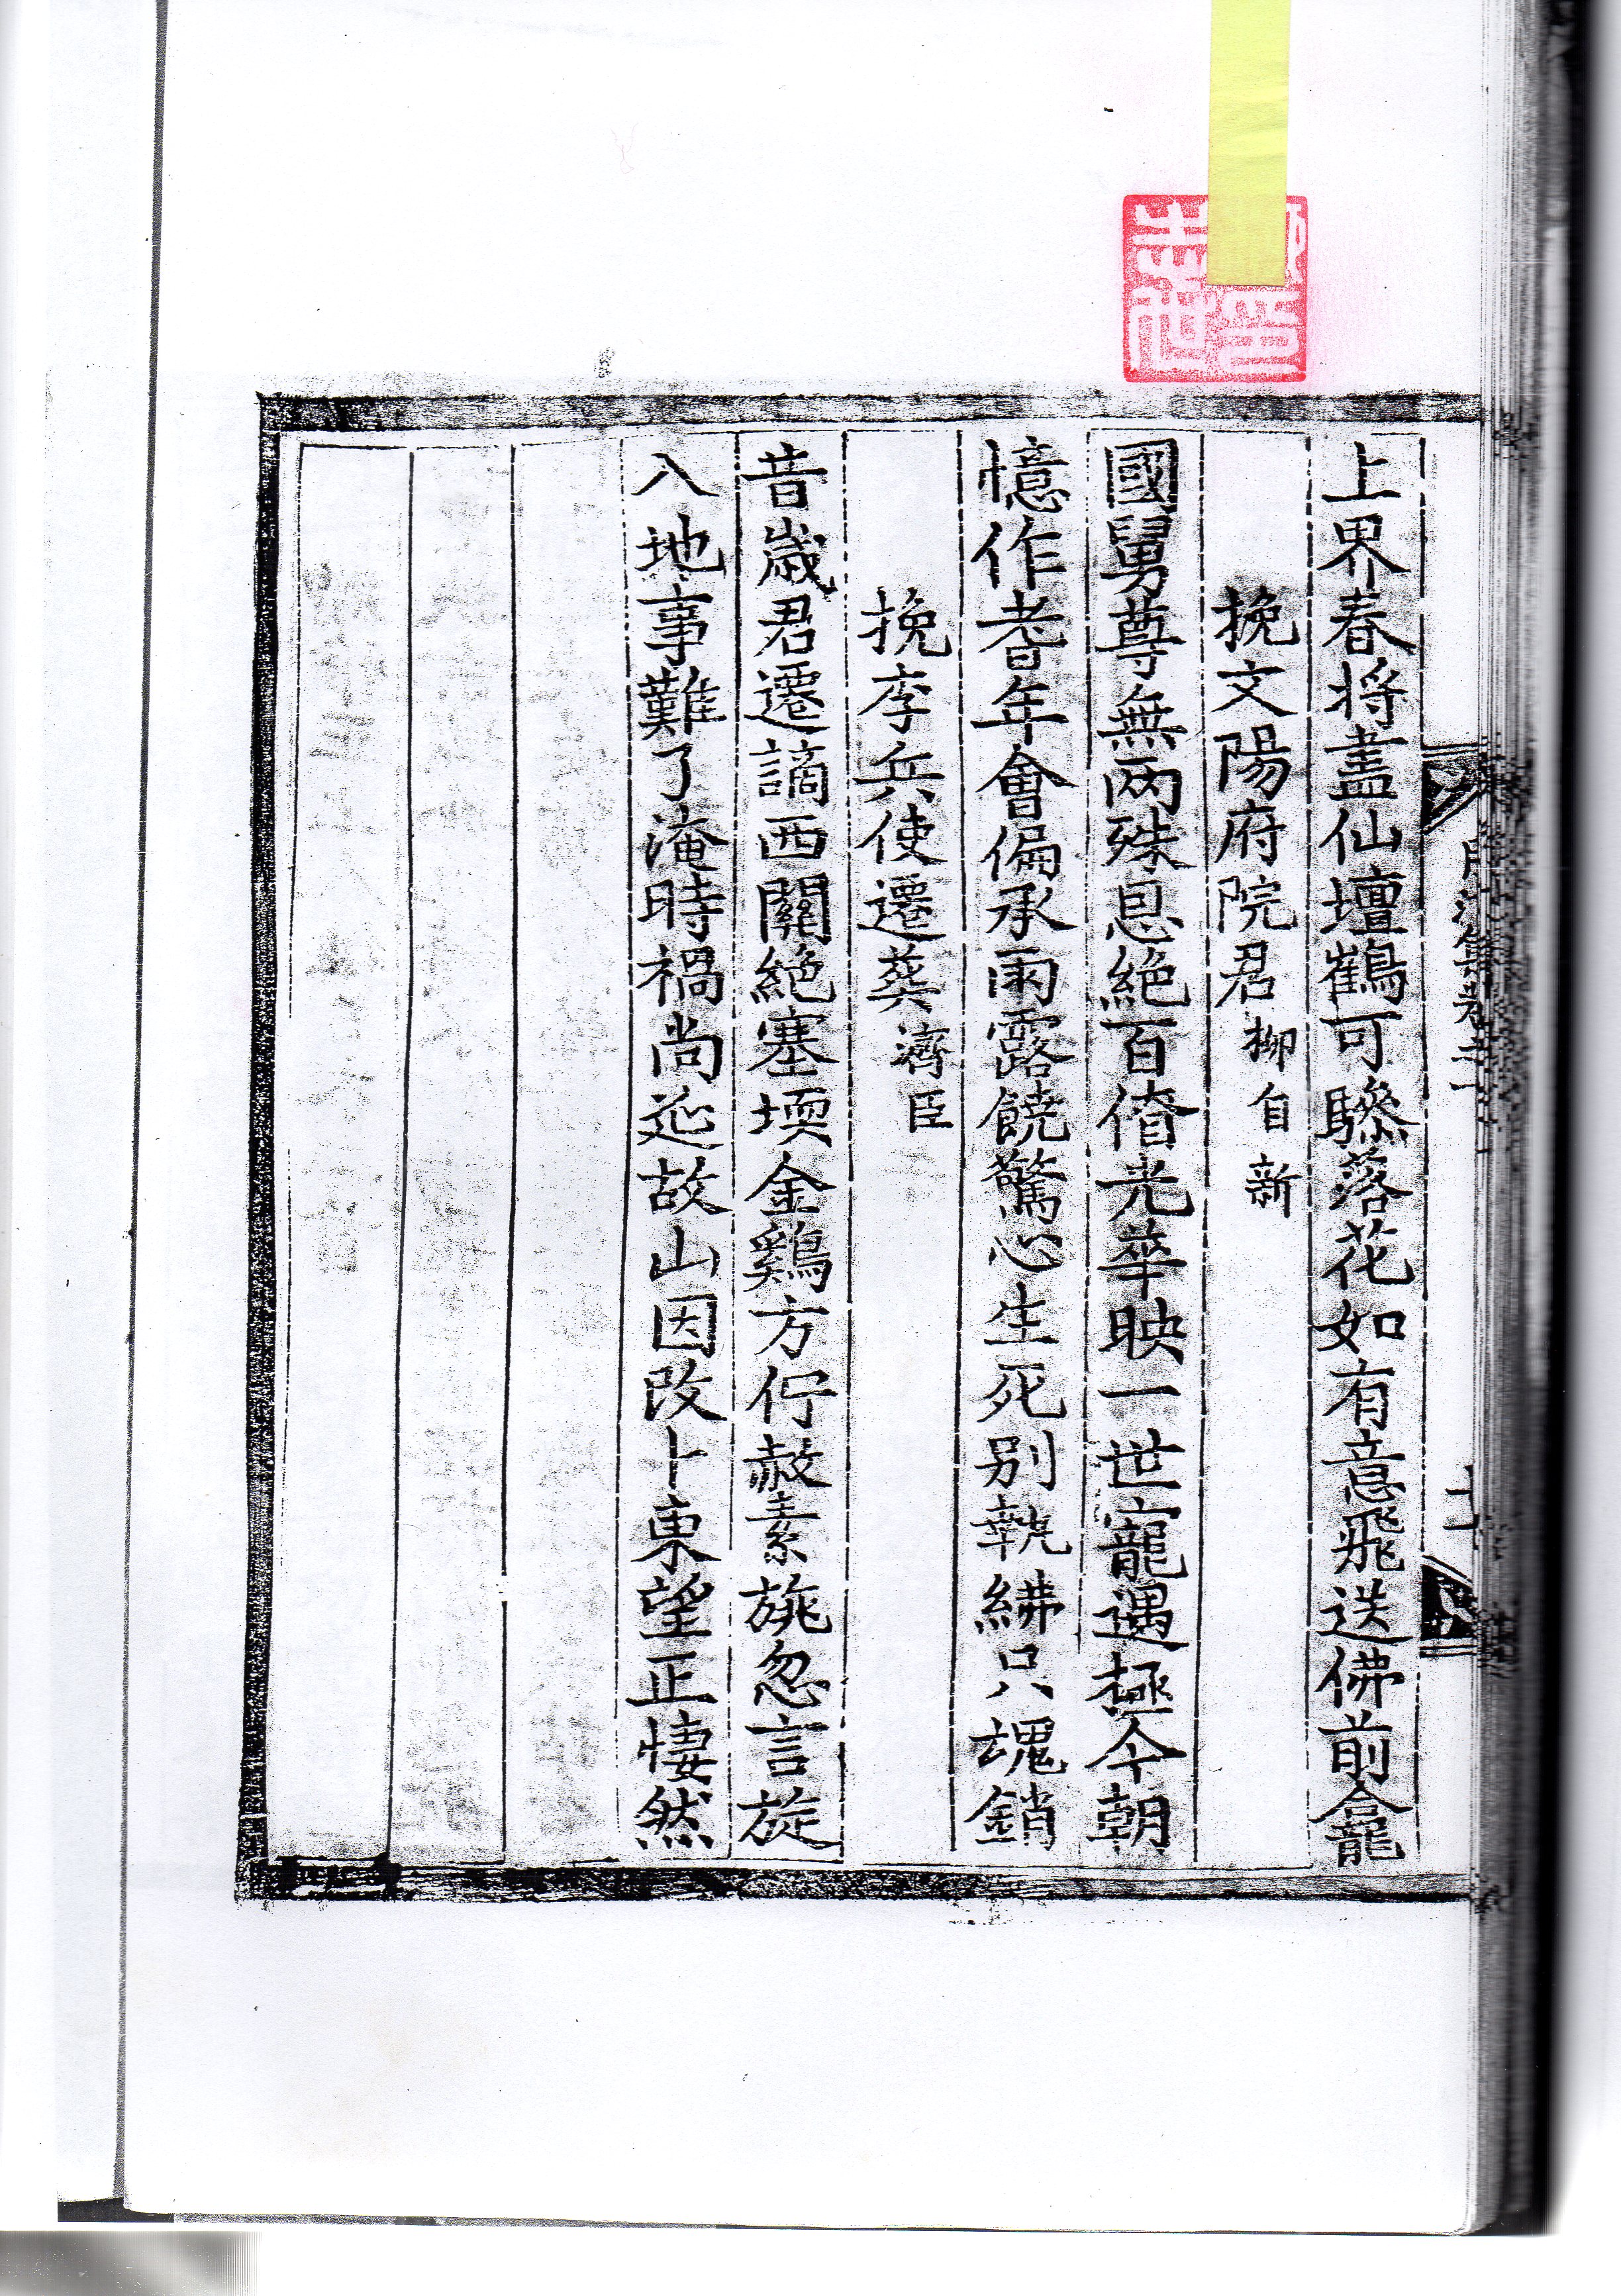 上界春將盡仙壇鶴可驂落花如有意飛送佛前龕
挽文陽府院君 柳自新
國舅尊無兩殊恩絕百僚光華映一世寵遇極今朝
憶作耆年會偏承雨露饒驚心生死別執紼只魂銷
挽李兵使遷葬 濟臣
昔歲君遷謫西關絕塞堧金鷄方佇赦素旐忽言旋
入地事難了淹時禍尚延故山因改卜東望正悽然